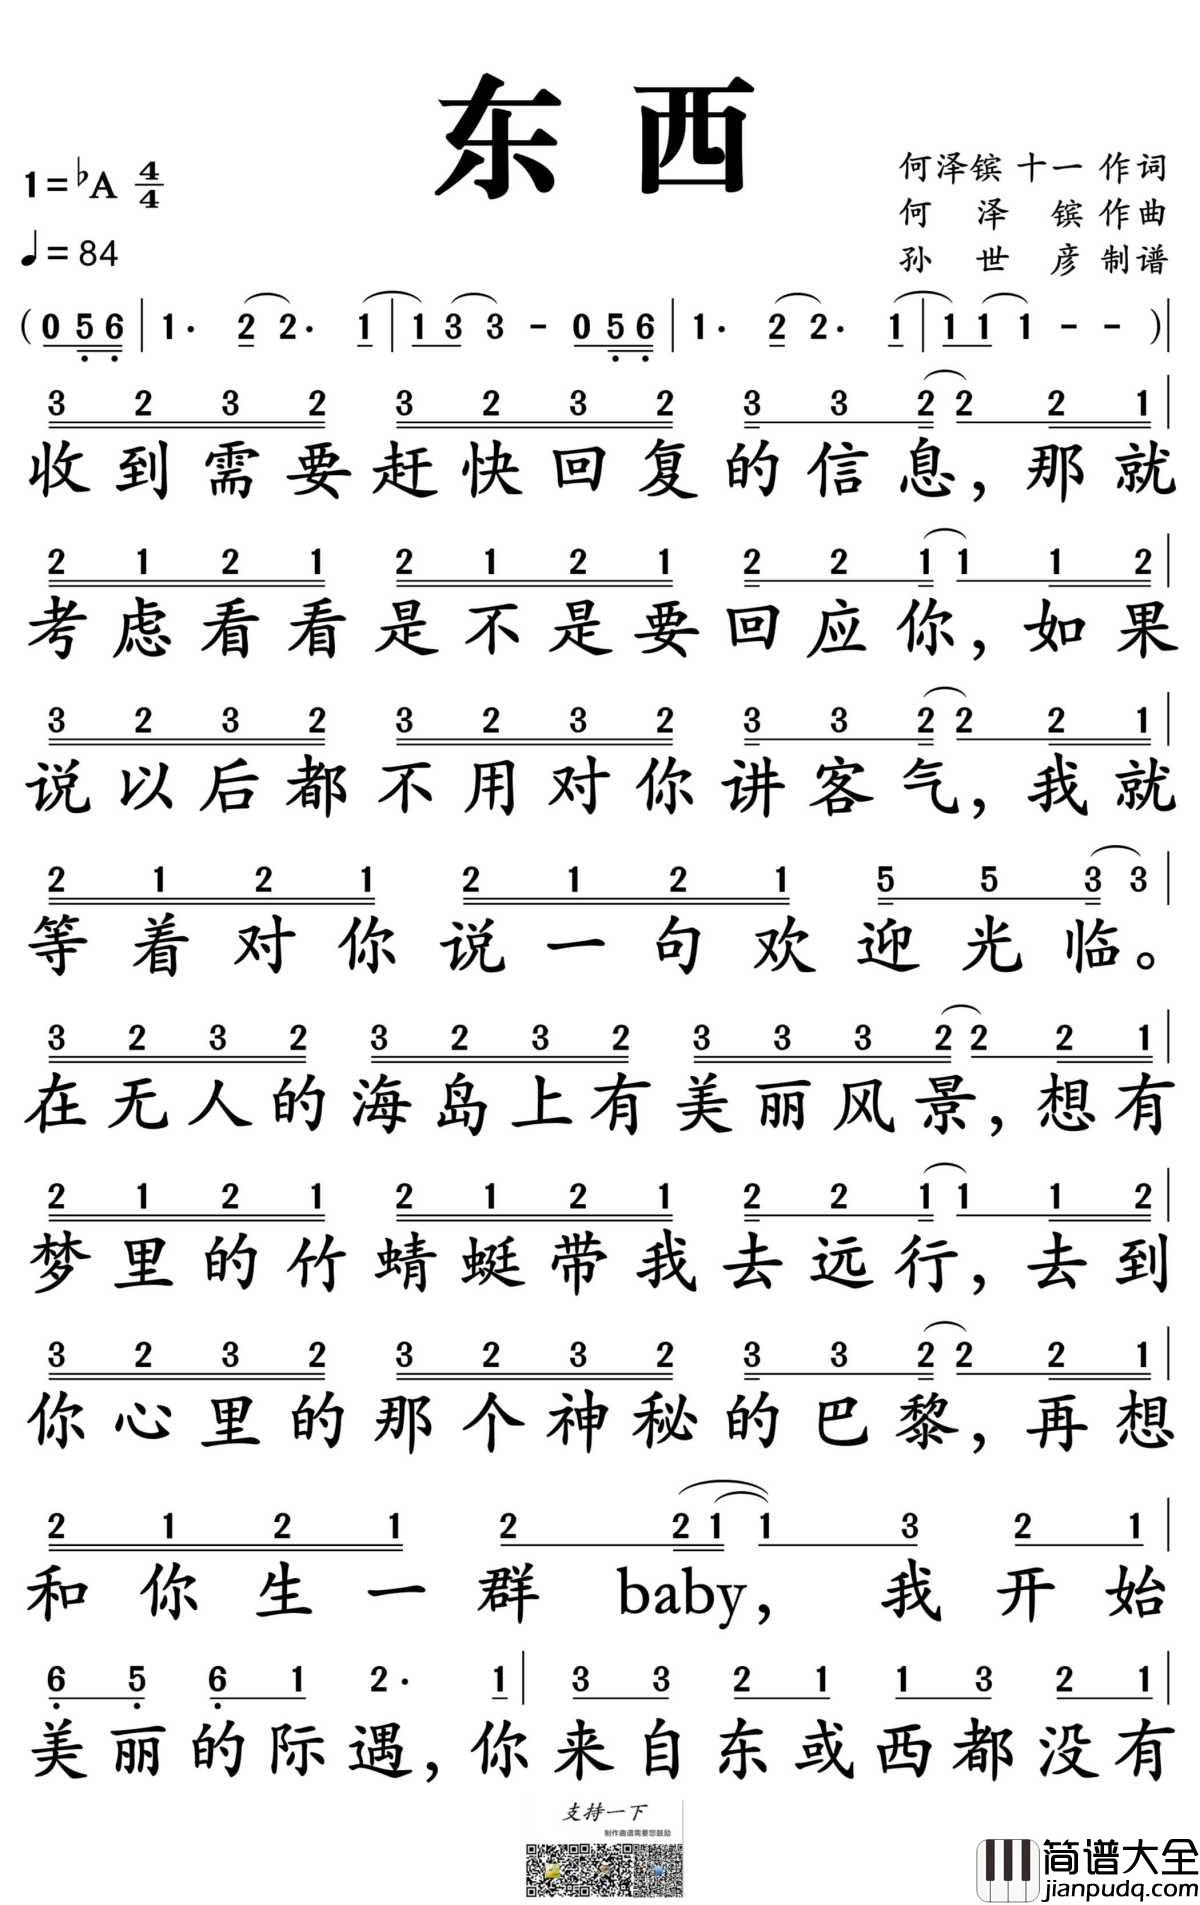 东 西
1=♭A 4/4
♩= 84
何泽镔 十一 作词
何 泽 镔 作曲
孙 世 彦 制谱
( 0 5 6 | 1· 2 2· 1 | 1 3 3 - 0 5 6 | 1· 2 2· 1 | 1 1 1 - - )|
3 2 3 2 3 2 3 2 3 3 2 2 2 1 |
收到需要赶快回复的信息，那就
2 1 2 1 2 1 2 1 2 2 1 1 1 2 |
考虑看看是不是要回应你，如果
3 2 3 2 3 2 3 2 3 3 2 2 2 1 |
说以后都不用对你讲客气，我就
2 1 2 1 2 1 2 1 5 5 3 3 |
等着对你说一句欢迎光临。
3 2 3 2 3 2 3 2 3 3 3 2 2 2 1 |
在无人的海岛上有美丽风景，想有
2 1 2 1 2 1 2 1 2 2 1 1 1 2 |
梦里的竹蜻蜓带我去远行，去到
3 2 3 2 3 2 3 2 3 3 2 2 2 1 |
你心里的那个神秘的巴黎，再想
2 1 2 1 2 2 1 1 3 2 1 |
和你生一群 baby， 我开始
6 5 6 1 2· 1 | 3 3 2 1 1 3 2 1 |
美丽的际遇，你来自东或西都没有
支持一下
制作曲谱需要您鼓励
简谱大全
jianpudq.com